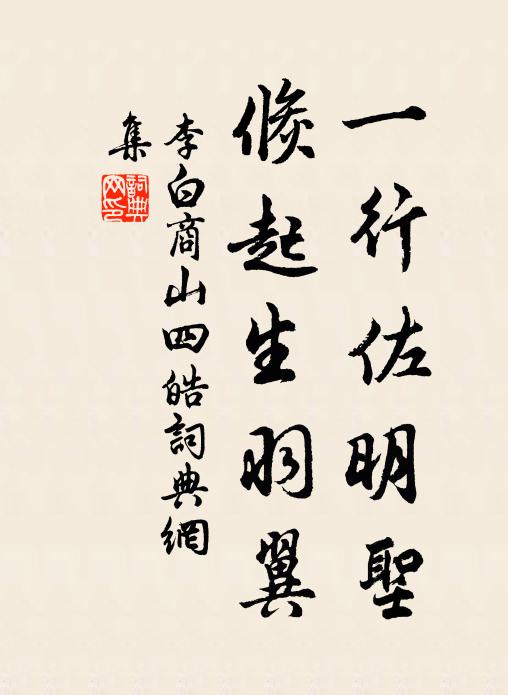 一行佐明聖
倏起生羽翼
李白商山四皓詞典網
集
詞典網印